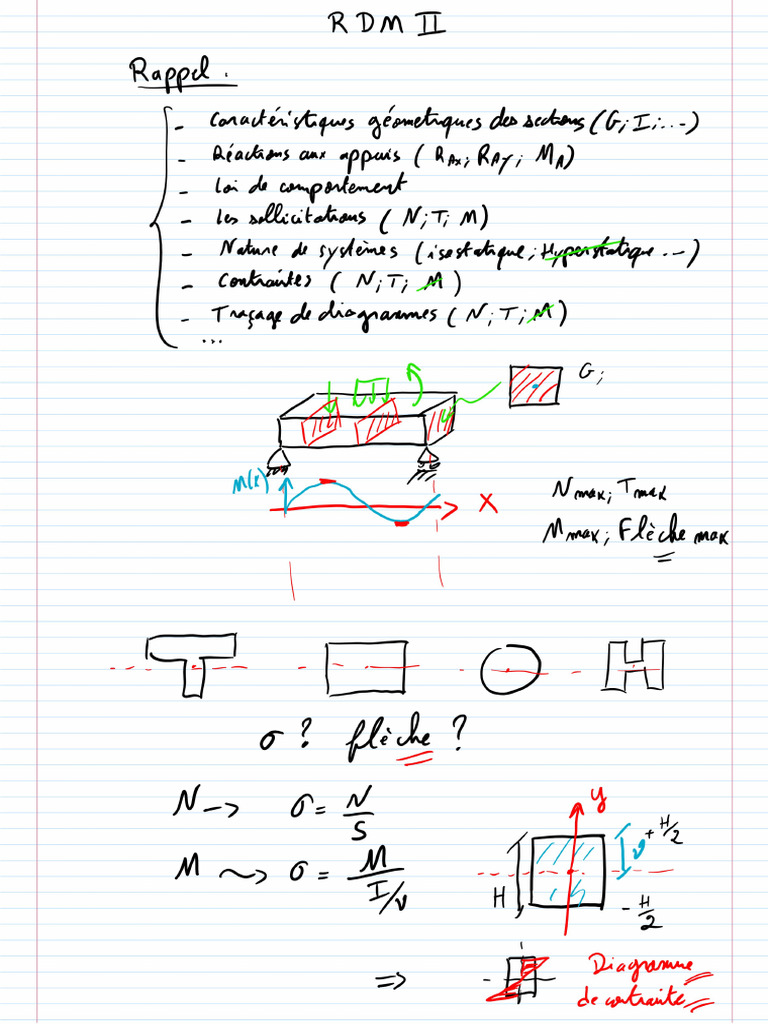 RDM II
Rappel.
- Caractéristiques géometriques des sections (G; I; ...)
- Réactions aux appuis (RAx; RAy; MA)
- Loi de comportement
- Les sollicitations (N; T; M)
- Nature de systèmes (isostatique; Hyperstatique ...)
- Contraintes (N; T; M)
- Traçage de diagrammes (N; T; M)
...
G;
M(x)
x
Nmax; Tmax
Mmax; Flèche max
σ? flèche?
N → σ = N/S
y
+H/2
v
M ⇝ σ = M/(I/v)
H
-H/2
⇒
Diagramme
de contrainte